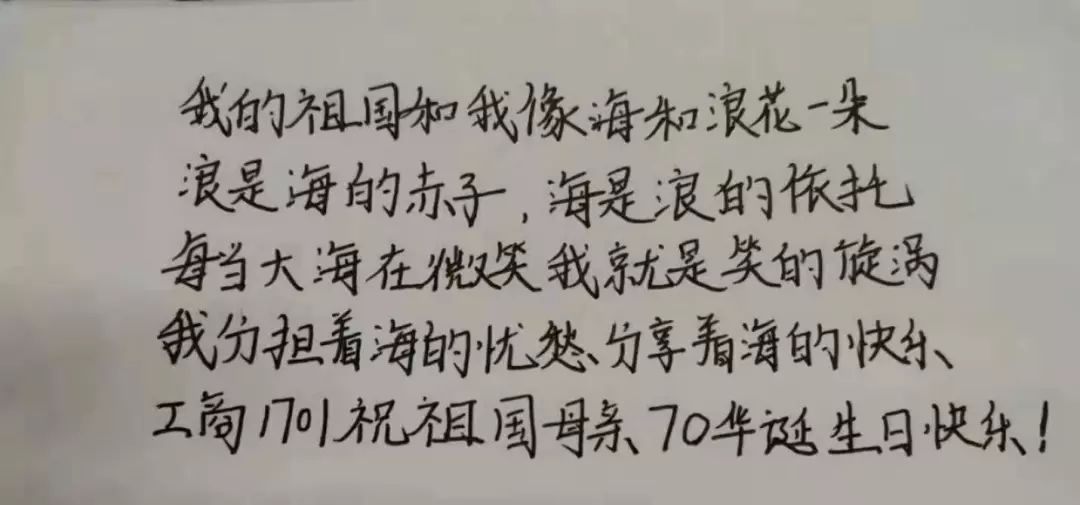 我的祖国和我像海和浪花一朵
浪是海的赤子,海是浪的依托
每当大海在微笑我就是笑的旋涡
我分担着海的忧愁、分享着海的快乐、
工商1701祝祖国母亲70华诞生日快乐!